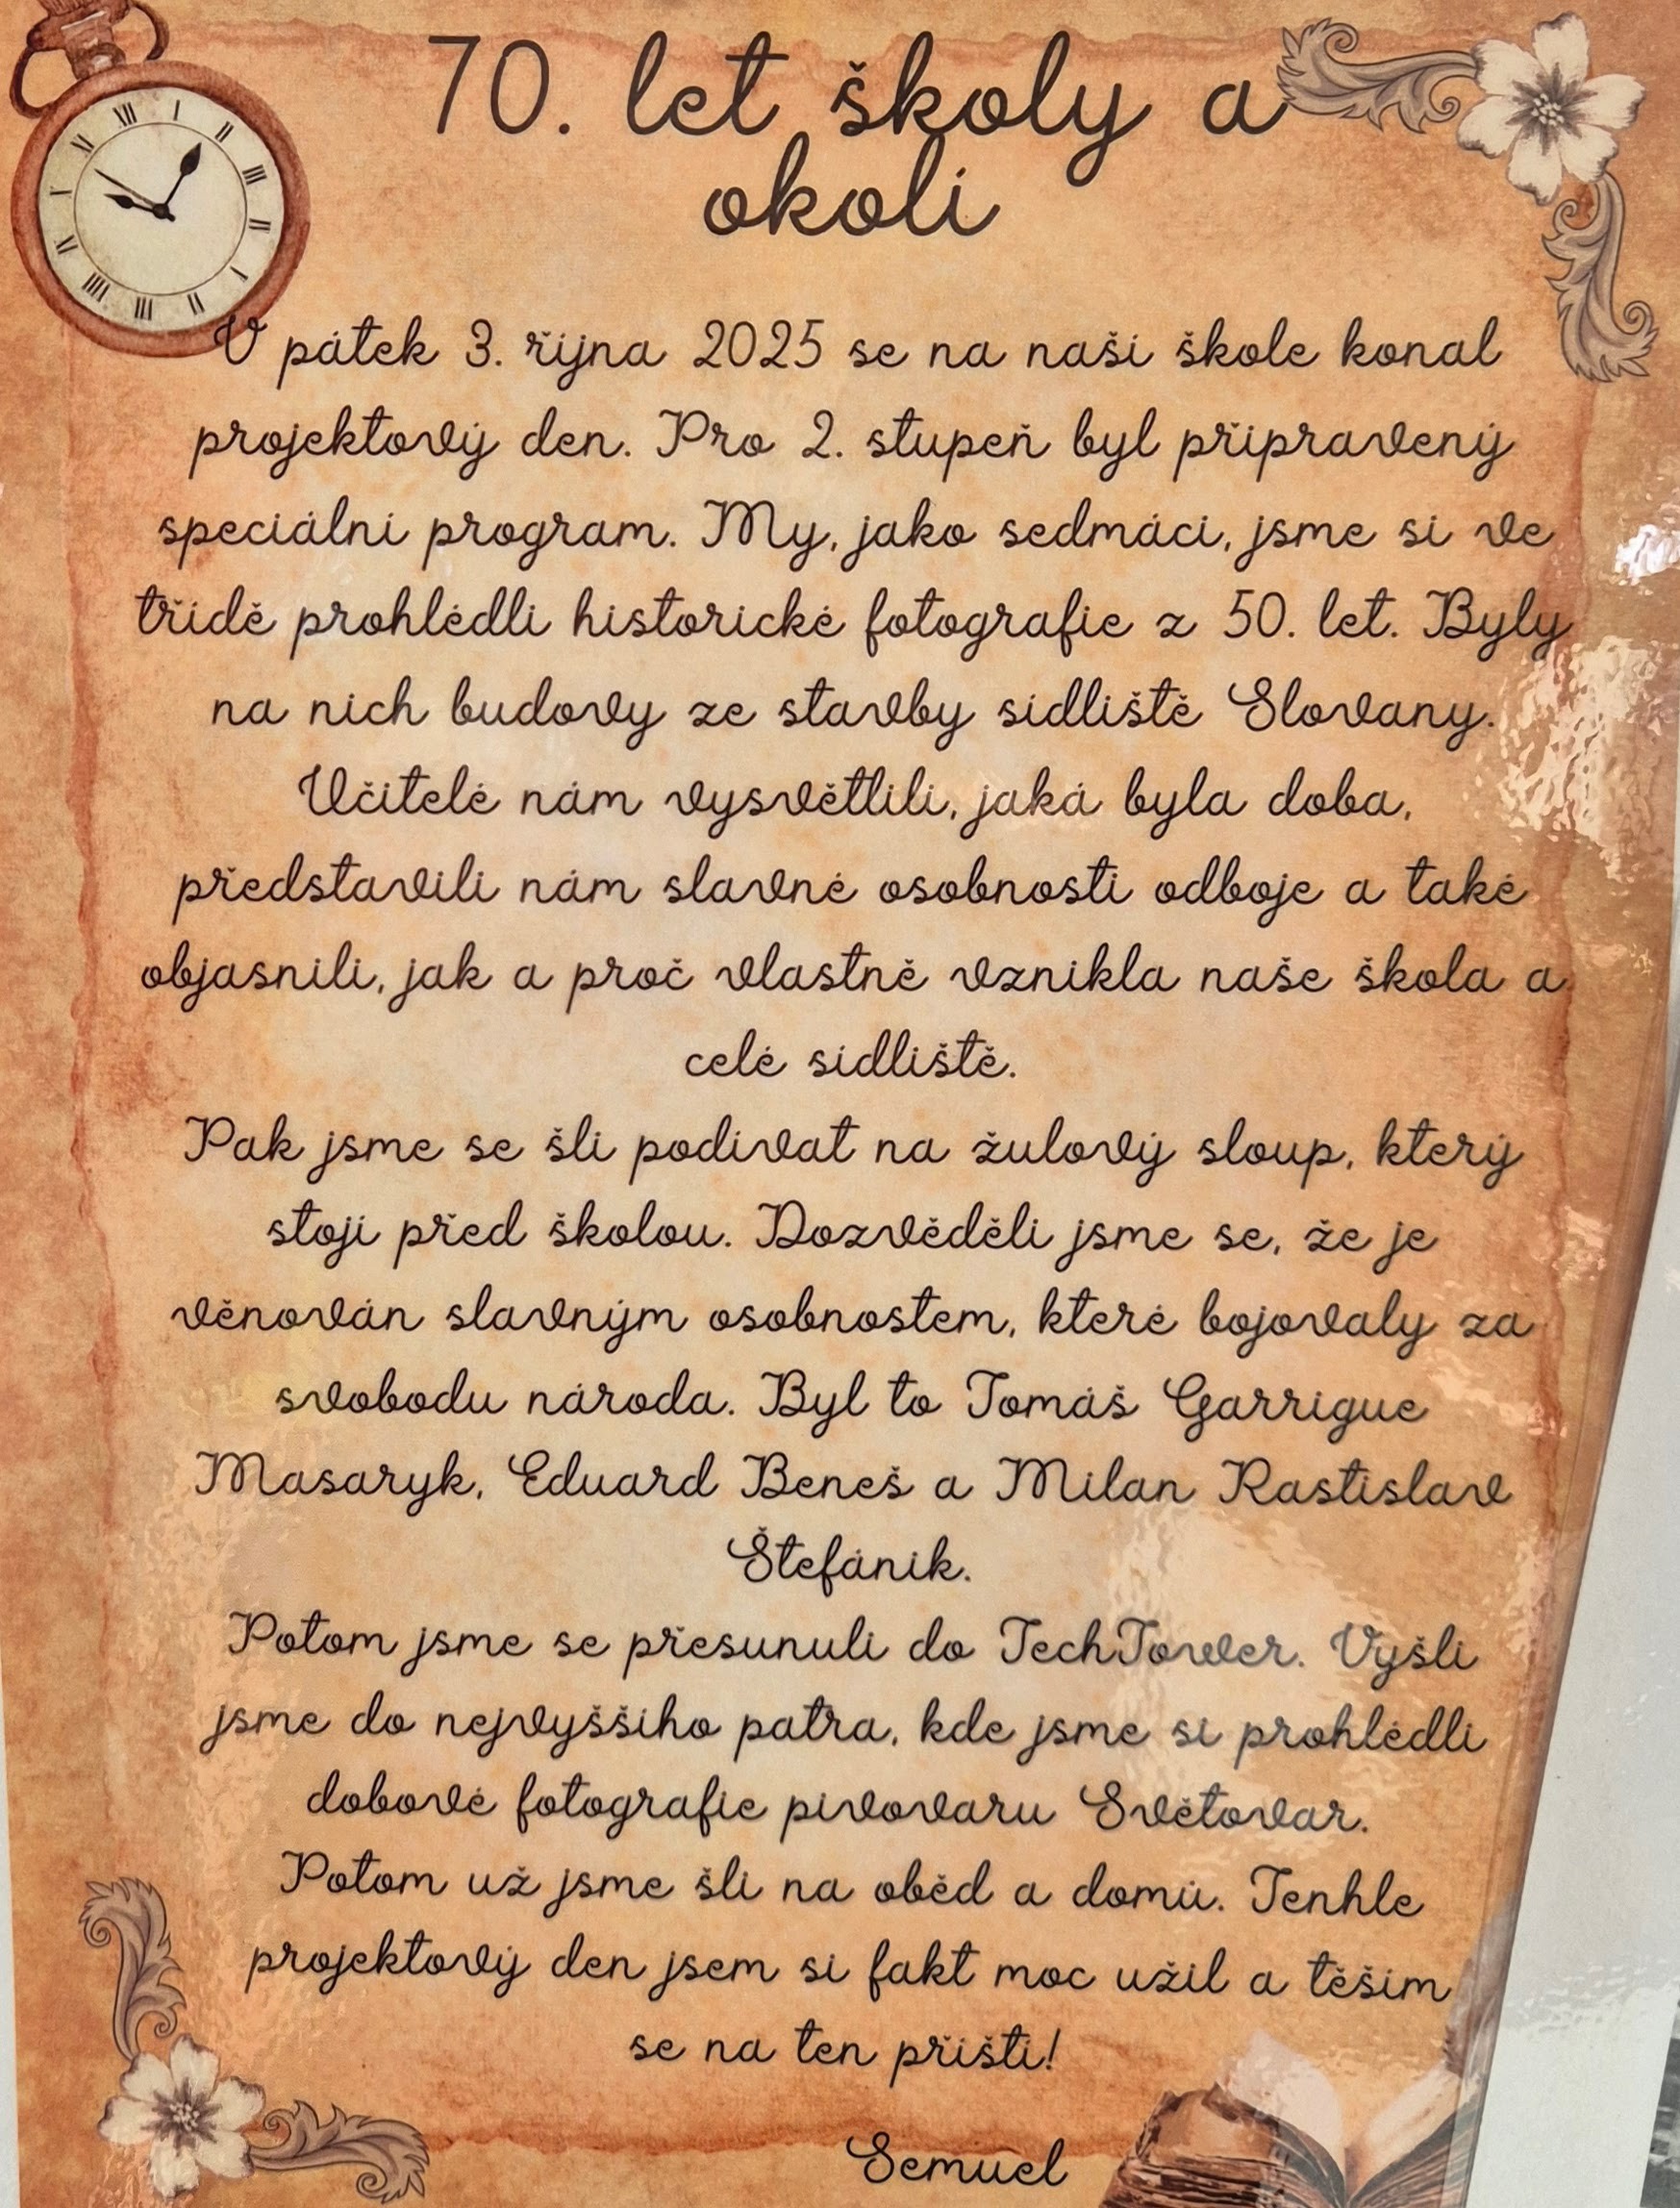 70. let školy a
okolí
V pátek 3. října 2025 se na naší škole konal
projektový den. Pro 2. stupeň byl připravený
speciální program. My, jako sedmáci, jsme si ve
třídě prohlédli historické fotografie z 50. let. Byly
na nich budovy ze stavby sídliště Slovany.
Učitelé nám vysvětlili, jaká byla doba,
představili nám slavné osobnosti odboje a také
objasnili, jak a proč vlastně vznikla naše škola a
celé sídliště.
Pak jsme se šli podívat na žulový sloup, který
stojí před školou. Dozvěděli jsme se, že je
věnován slavným osobnostem, které bojovaly za
svobodu národa. Byl to Tomáš Garrigue
Masaryk, Eduard Beneš a Milan Rastislav
Štefánik.
Potom jsme se přesunuli do TechTower. Vyšli
jsme do nejvyššího patra, kde jsme si prohlédli
dobové fotografie pivovaru Světovar.
Potom už jsme šli na oběd a domů. Tenhle
projektový den jsem si fakt moc užil a těším
se na ten příští!
Semuel